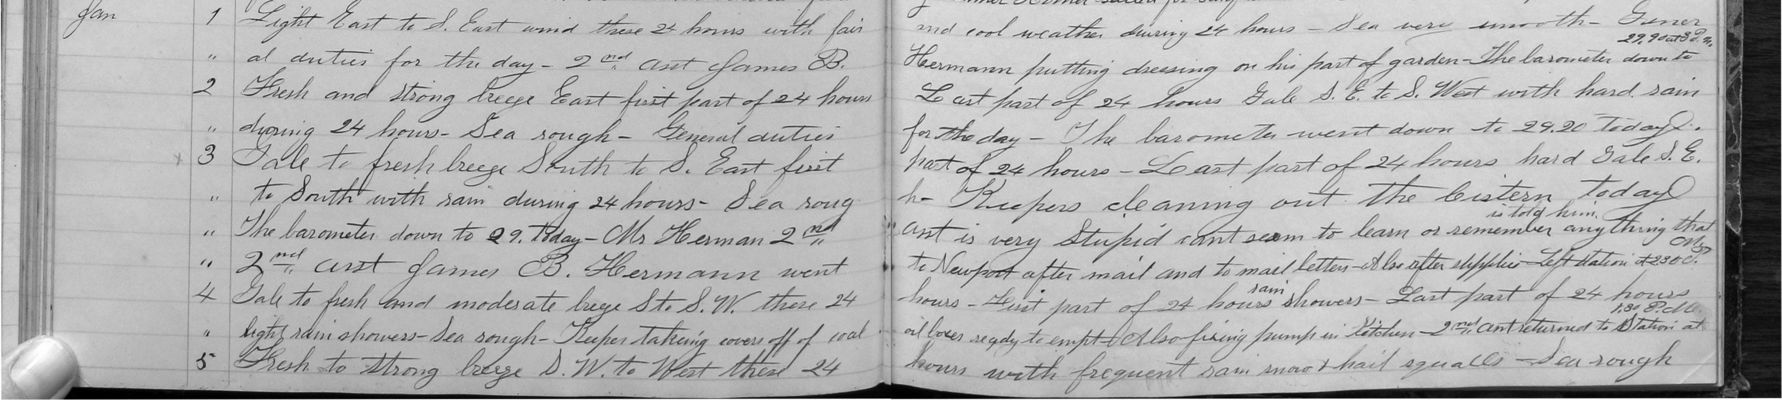 Jan 1 Light East to S. East wind these 24 hours with fair and cool weather during 24 hours - Sea very smooth - Gener
29.90 at 3 P.M.
" al duties for the day - 2nd asst James B. Hermann putting dressing on his part of garden - The barometer down to
2 Fresh and strong breeze East first part of 24 hours Last part of 24 hours Gale S.E. to S. West with hard rain
" during 24 hours - Sea rough - General duties for the day - The barometer went down to 29.20 today.
3 Gale to fresh breeze South to S. East first part of 24 hours - Last part of 24 hours hard Gale S.E.
" to South with rain during 24 hours - Sea roug h - Keepers cleaning out the Cistern today
is told him
" The barometer down to 29. today - Mr Herman 2nd asst is very Stupid cant seem to learn or remember anything that
" 2nd asst James B. Hermann went to Newport after mail and to mail letters - Also after supplies - Left station at 230 P.
rain
4 Gale to fresh and moderate breeze S. to S.W. these 24 hours - First part of 24 hours showers - Last part of 24 hours
1.30 P.M.
" light rain showers - Sea rough - Keeper taking covers off of coal oil boxes ready to empt Also fixing pump in Kitchen - 2nd asst returned to Station at
5 Fresh to strong breeze S.W. to West these 24 hours with frequent rain snow & hail squalls - Sea rough